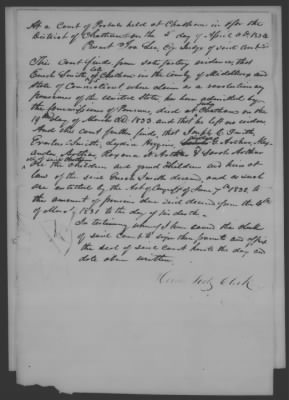 At a Court of Probate held at Chatham in & for the
District of Chatham on the 2d day of April AD. 1834
Present Esq. Judge of said Court
This Court finds from satisfactory evidence, that
Enoch Smith, late of Chatham in the County of Middlesex and
State of Connecticut whose claim as a revolutionary
pensioner of the United States has been admitted by
the Commissioner of Pensions, died at said Chatham on the
19th day of March AD. 1833 and that he left no widow
And this Court further finds, that Joseph C. Smith,
Erastus Smith, Lydia Higgins,
and Sarah
the children and grand children and heirs at
law of the said Enoch Smith deceased, and as such
are entitled by the Act of Congress of June 7th 1832, to
the amount of pension due said deceased from the 4th
of March, 1831 to the day of his death.
In testimony whereof I have caused the clerk
of said court to sign these presents and affix
the seal of said court hereto the day and
date above written.
Clerk